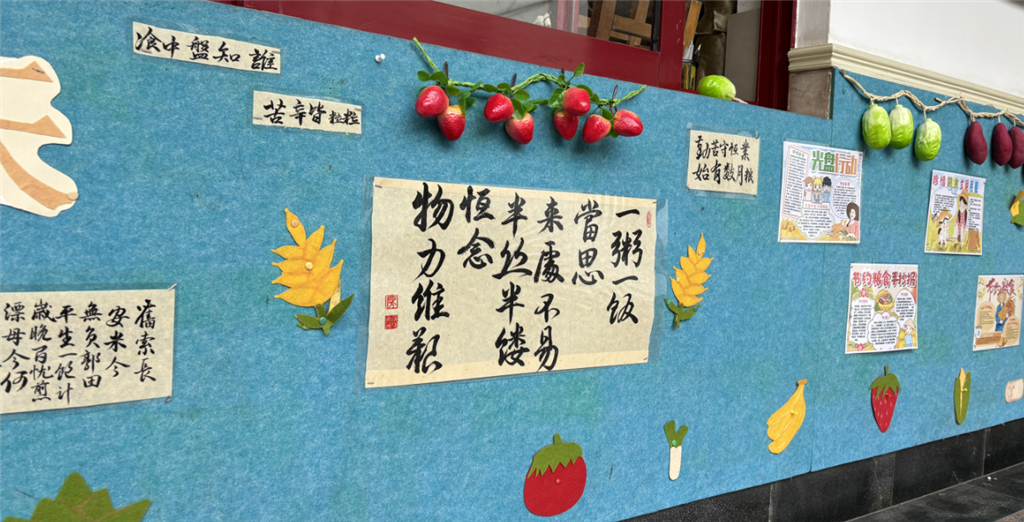 誰知盤中飡
粒粒皆辛苦
舊索長
安米今
無負郭田
平生一飽計
歲晚百忧煎
漂母今何
一粥一饭
當思
来處不易
半丝半缕
恒念
物力維艱
勤苦守恒業
始有数月粮
光盘行动
节约粮食手抄报